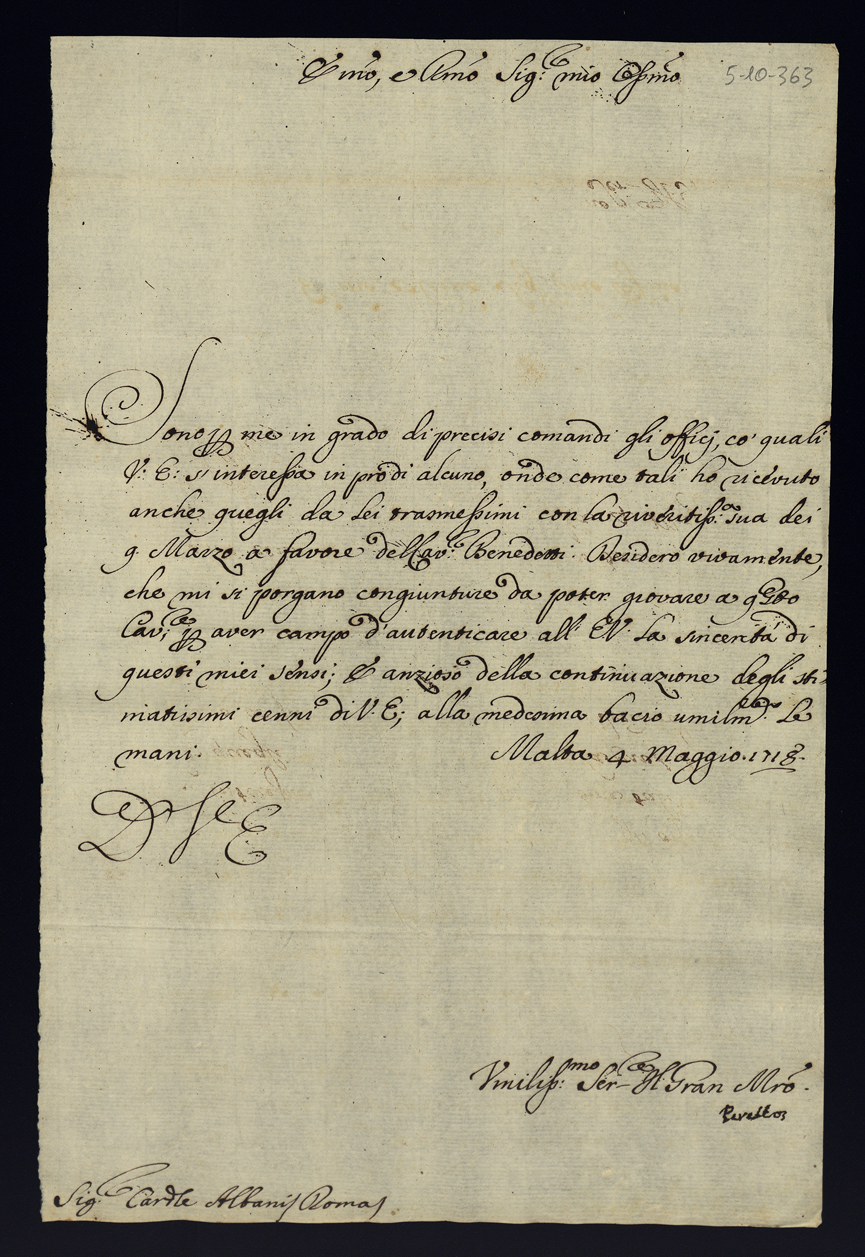 Emo, e Rmo Sig.re mio Ossmo
5-10-363
Sono p me in grado di precisi comandi gli officj, co' quali
V. E: s'interessa in prò di alcuno, onde come tali hò ricevuto
anche quegli da Lei trasmessimi con la riveritiss.a sua dei
9 Marzo a favore del Cav.re Benedetti. Desidero vivamente,
che mi si porgano congiunture da poter giovare a qsto
Cav:re p aver campo d'autenticare all' E V. la sincerità di
questi miei sensi; & anzioso della continuazione degli sti
matissimi cenni di V. E; alla medesima bacio umilm.te Le
mani. Malta 4 Maggio. 1718.
D V E
Vmiliss:mo Ser.re Il Gran Mro.
Perellos
Sig.re Cardle Albani Roma